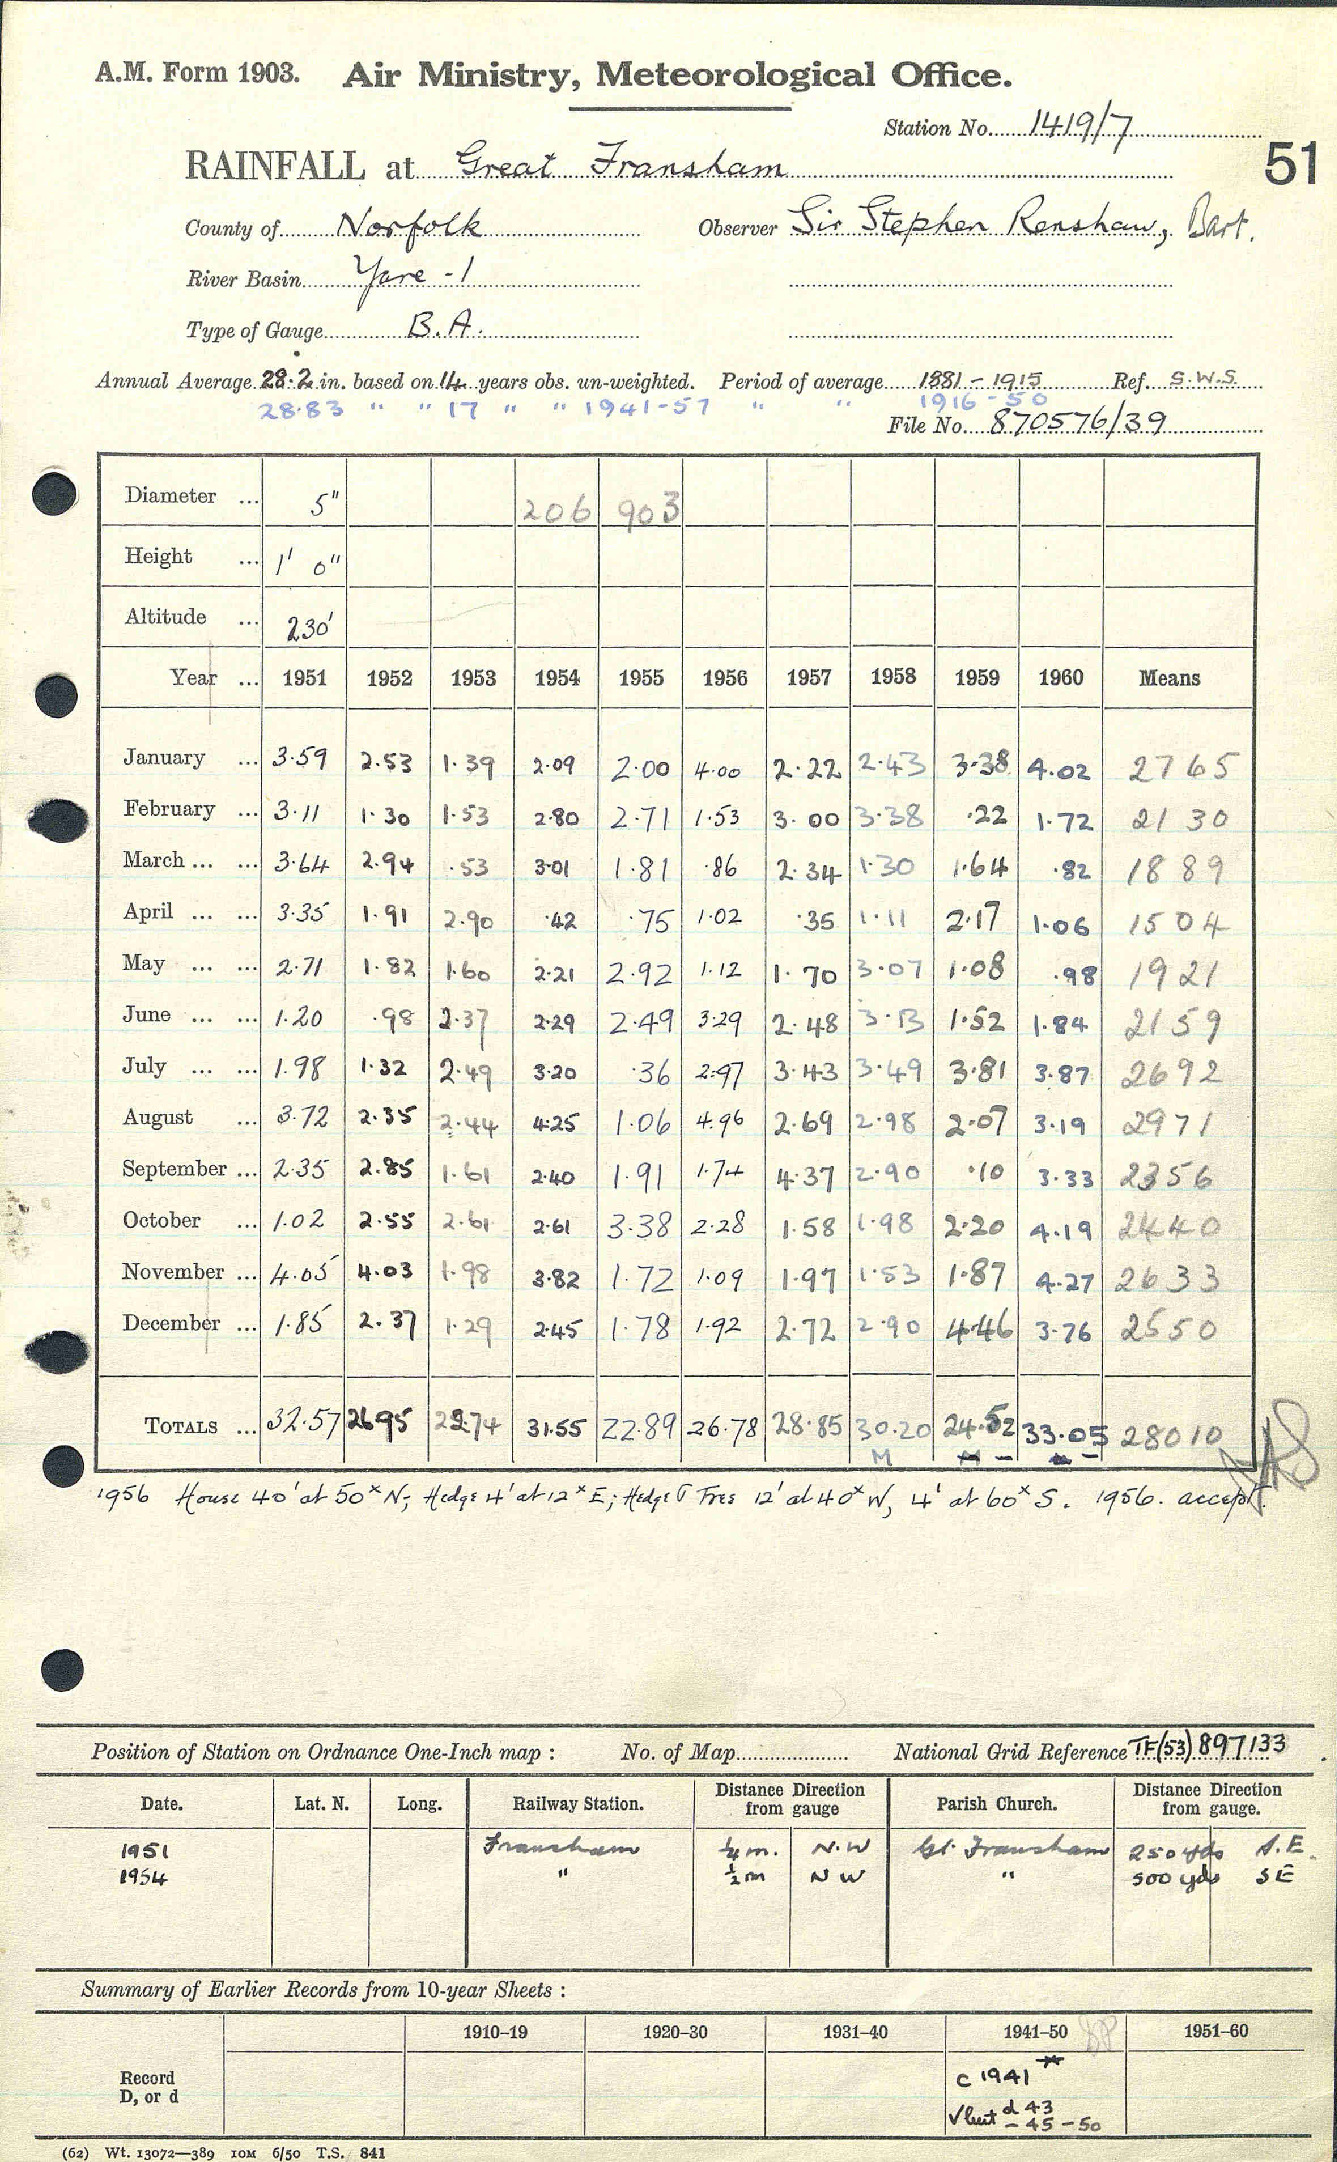 A.M. Form 1903. Air Ministry, Meteorological Office.
Station No. 1419/7
51
RAINFALL at Great Fransham
County of Norfolk Observer Sir Stephen Renshaw, Bart.
River Basin Yare - 1
Type of Gauge B.A.
Annual Average 28.2 in. based on 14 years obs. un-weighted. Period of average 1881 - 1915 Ref. S.W.S.
28.83 " " 17 " " 1941-57 " " 1916-50
File No. 870576/39
Diameter ... 5" 206 903
Height ... 1' 0"
Altitude ... 230'
Year ... 1951 1952 1953 1954 1955 1956 1957 1958 1959 1960 Means
January ... 3.59 2.53 1.39 2.09 2.00 4.00 2.22 2.43 3.38 4.02 2765
February ... 3.11 1.30 1.53 2.80 2.71 1.53 3.00 3.38 .22 1.72 2130
March ... ... 3.64 2.94 .53 3.01 1.81 .86 2.34 1.30 1.64 .82 1889
April ... ... 3.35 1.91 2.90 .42 .75 1.02 .35 1.11 2.17 1.06 1504
May ... ... 2.71 1.82 1.60 2.21 2.92 1.12 1.70 3.07 1.08 .98 1921
June ... ... 1.20 .98 2.37 2.29 2.49 3.29 2.48 3.13 1.52 1.84 2159
July ... ... 1.98 1.32 2.49 3.20 .36 2.97 3.43 3.49 3.81 3.87 2692
August ... 3.72 2.35 2.44 4.25 1.06 4.96 2.69 2.98 2.07 3.19 2971
September ... 2.35 2.85 1.61 2.40 1.91 1.74 4.37 2.90 .10 3.33 2356
October ... 1.02 2.55 2.61 2.61 3.38 2.28 1.58 1.98 2.20 4.19 2440
November ... 4.05 4.03 1.98 3.82 1.72 1.09 1.97 1.53 1.87 4.27 2633
December ... 1.85 2.37 1.29 2.45 1.78 1.92 2.72 2.90 4.46 3.76 2550
TOTALS ... 32.57 26.95 22.74 31.55 22.89 26.78 28.85 30.20 24.52 33.05 28010
M
1956 House 40' at 50ˣ N; Hedge 4' at 12ˣ E; Hedge Trees 12' at 40ˣ W, 4' at 60ˣ S. 1956. accept.
Position of Station on Ordnance One-Inch map : No. of Map National Grid Reference TF(53) 897133
Date. Lat. N. Long. Railway Station. Distance Direction from gauge Parish Church. Distance Direction from gauge.
1951 Fransham ¼ m. N.W Gt. Fransham 250 yds S.E.
1954 " ½ m N W " 500 yds S E
Summary of Earlier Records from 10-year Sheets :
1910–19 1920–30 1931–40 1941–50 1951–60
Record D, or d
c 1941
d 43
- 45 - 50
(62) Wt. 13072—389 10M 6/50 T.S. 841